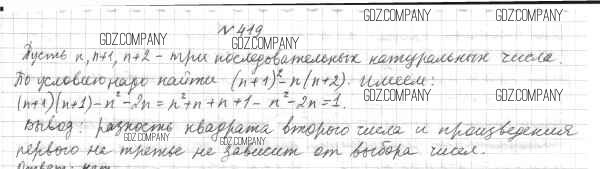 GDZ.COMPANY GDZ.COMPANY
№ 419
GDZ.COMPANY GDZ.COMPANY
Пусть n, n+1, n+2 – три последовательных натуральных числа.
По условию надо найти (n+1)² - n(n+2). Имеем:
(n+1)(n+1) - n² - 2n = n² + n + n + 1 - n² - 2n = 1.
GDZ.COMPANY GDZ.COMPANY
Вывод: разность квадрата второго числа и произведения
GDZ.COMPANY GDZ.COMPANY
первого на третье не зависит от выбора чисел.
Ответ: нет